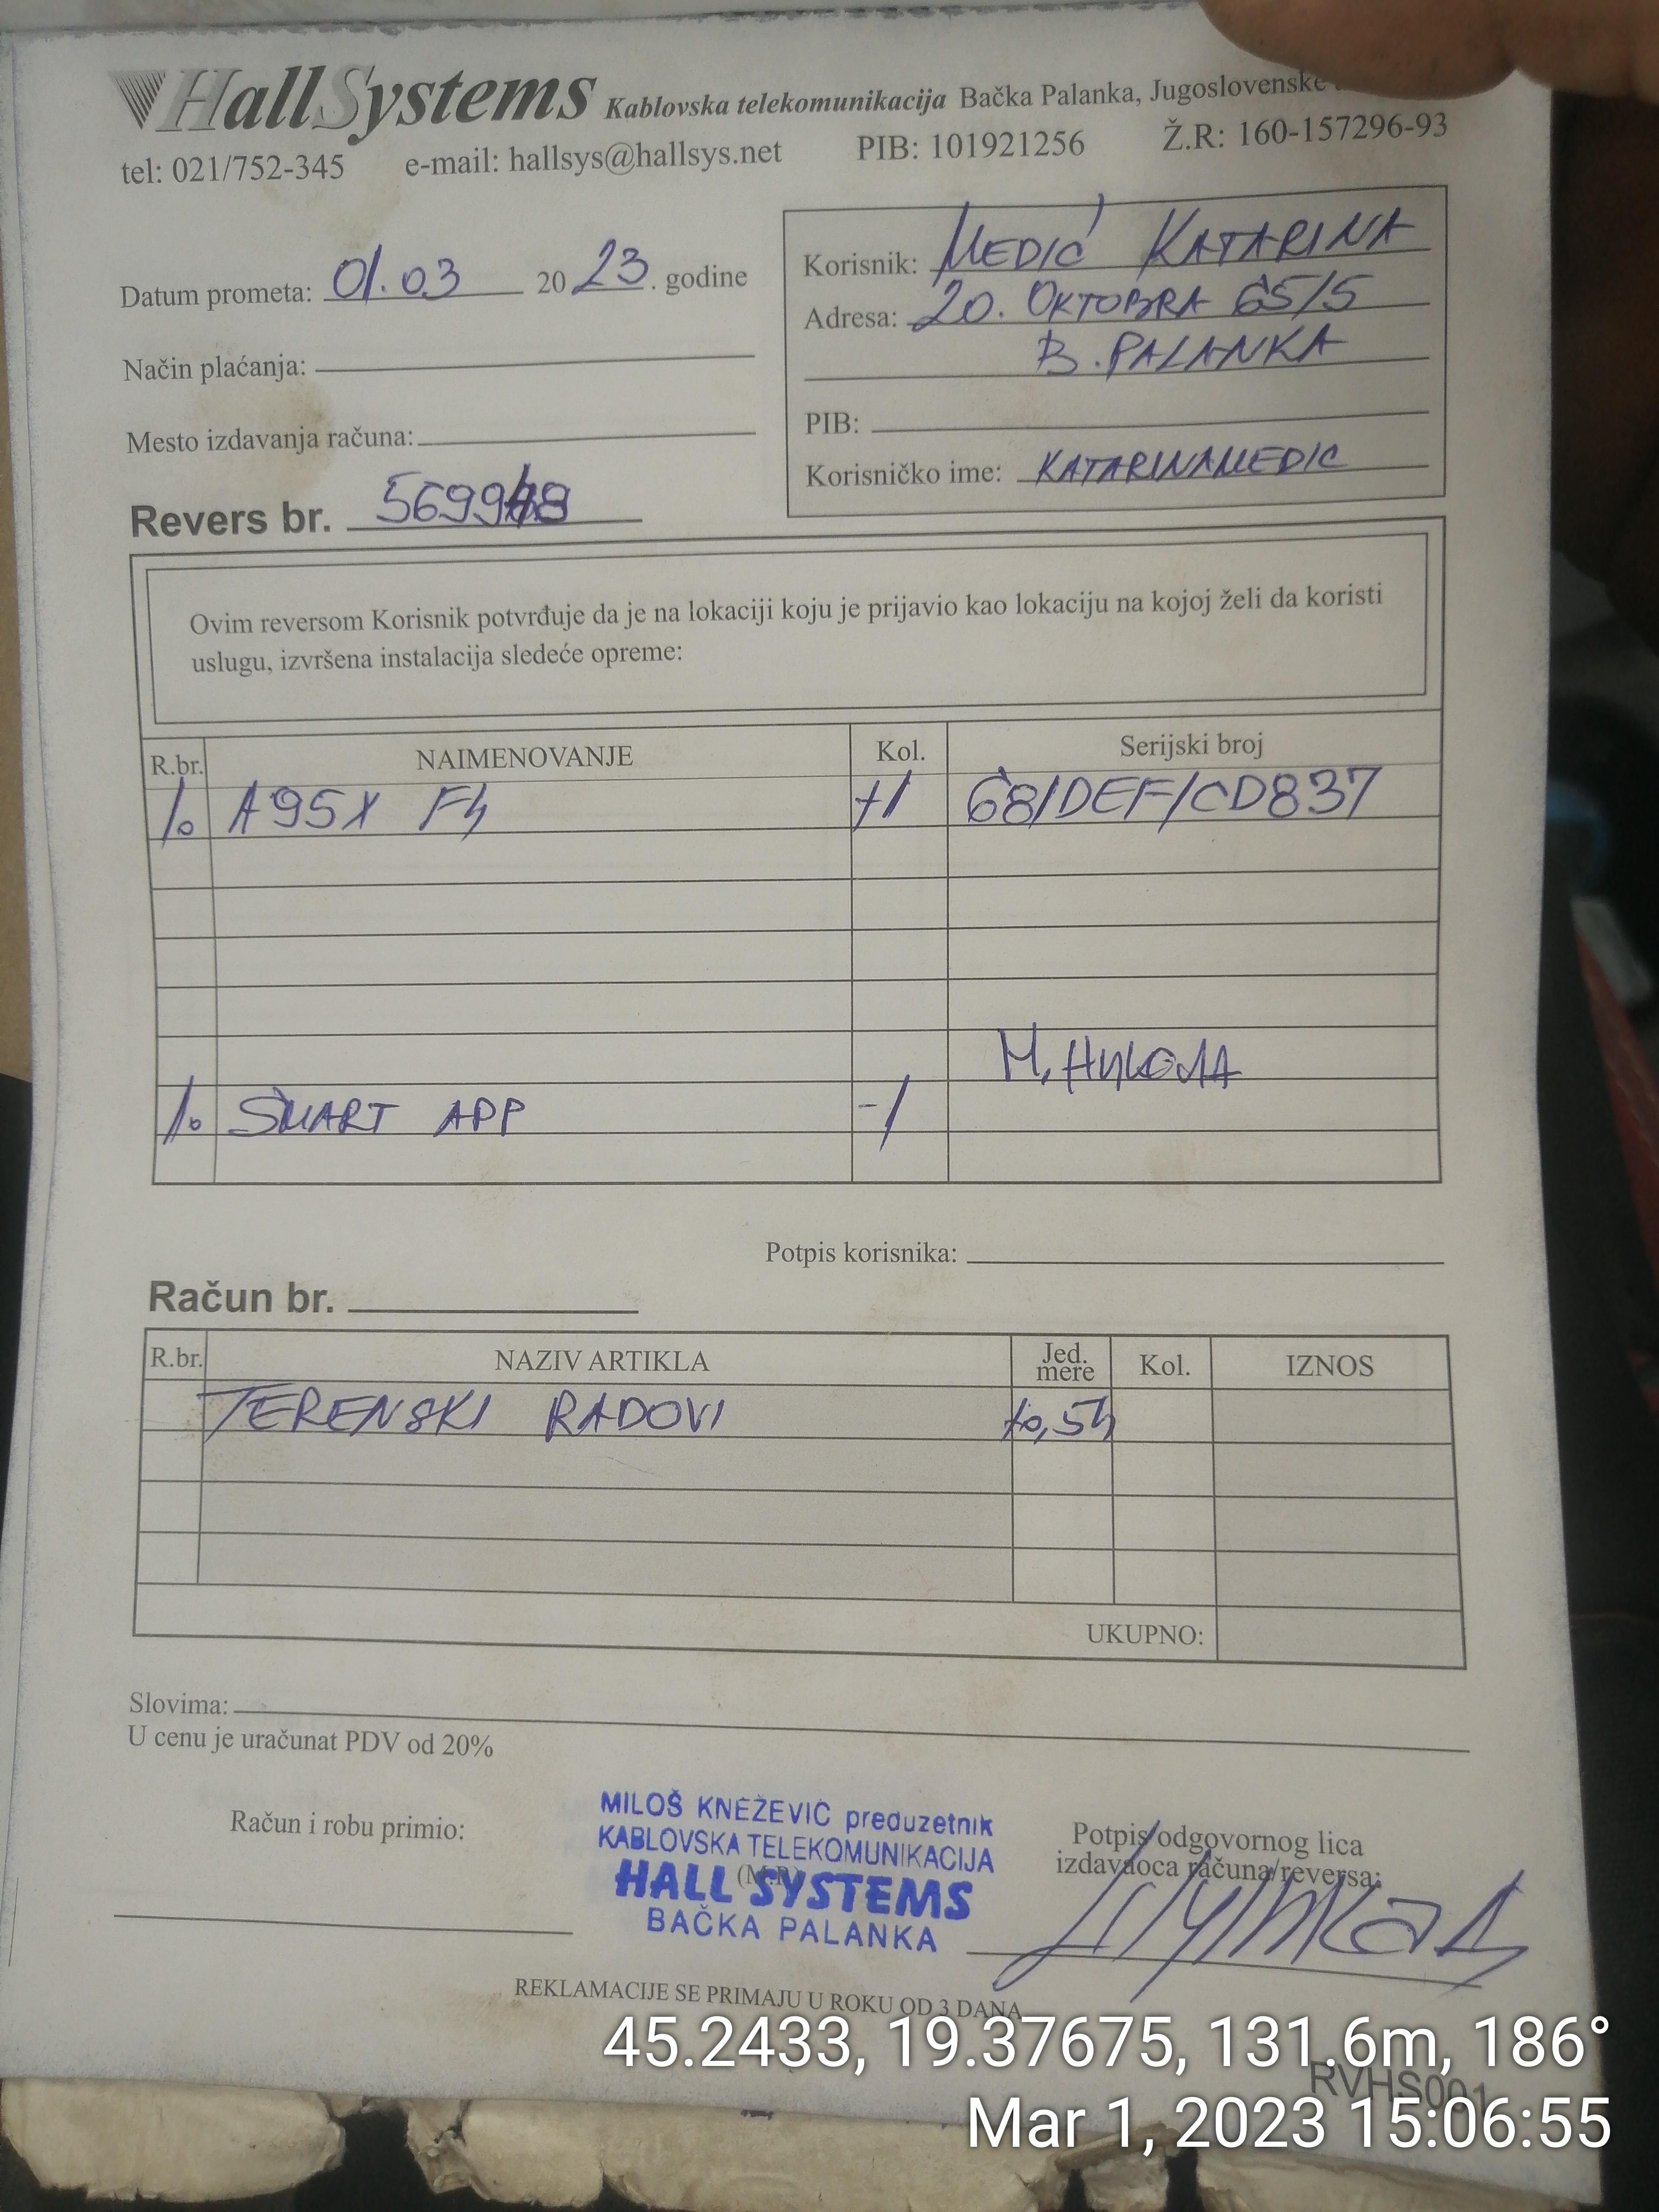 HallSystems Kablovska telekomunikacija Bačka Palanka, Jugoslovenske
tel: 021/752-345 e-mail: hallsys@hallsys.net PIB: 101921256 Ž.R: 160-157296-93
Datum prometa: 01.03 2023. godine
Način plaćanja:
Mesto izdavanja računa:
Korisnik: MEDIĆ KATARINA
Adresa: 20. OKTOBRA 65/5
B. PALANKA
PIB:
Korisničko ime: KATARINAMEDIC
Revers br.
Ovim reversom Korisnik potvrđuje da je na lokaciji koju je prijavio kao lokaciju na kojoj želi da koristi
uslugu, izvršena instalacija sledeće opreme:
R.br. NAIMENOVANJE Kol. Serijski broj
1. A95X F4 +1 681DEF1CD837
М. НИКОЛА
1. SMART APP -1
Potpis korisnika:
Račun br.
R.br. NAZIV ARTIKLA Jed. mere Kol. IZNOS
TERENSKI RADOVI
UKUPNO:
Slovima:
U cenu je uračunat PDV od 20%
Račun i robu primio:
MILOŠ KNEŽEVIĆ preduzetnik
KABLOVSKA TELEKOMUNIKACIJA
(M.P.)
HALL SYSTEMS
BAČKA PALANKA
Potpis odgovornog lica
izdavaoca računa/reversa:
REKLAMACIJE SE PRIMAJU U ROKU OD 3 DANA
RVHS001
45.2433, 19.37675, 131.6m, 186°
Mar 1, 2023 15:06:55